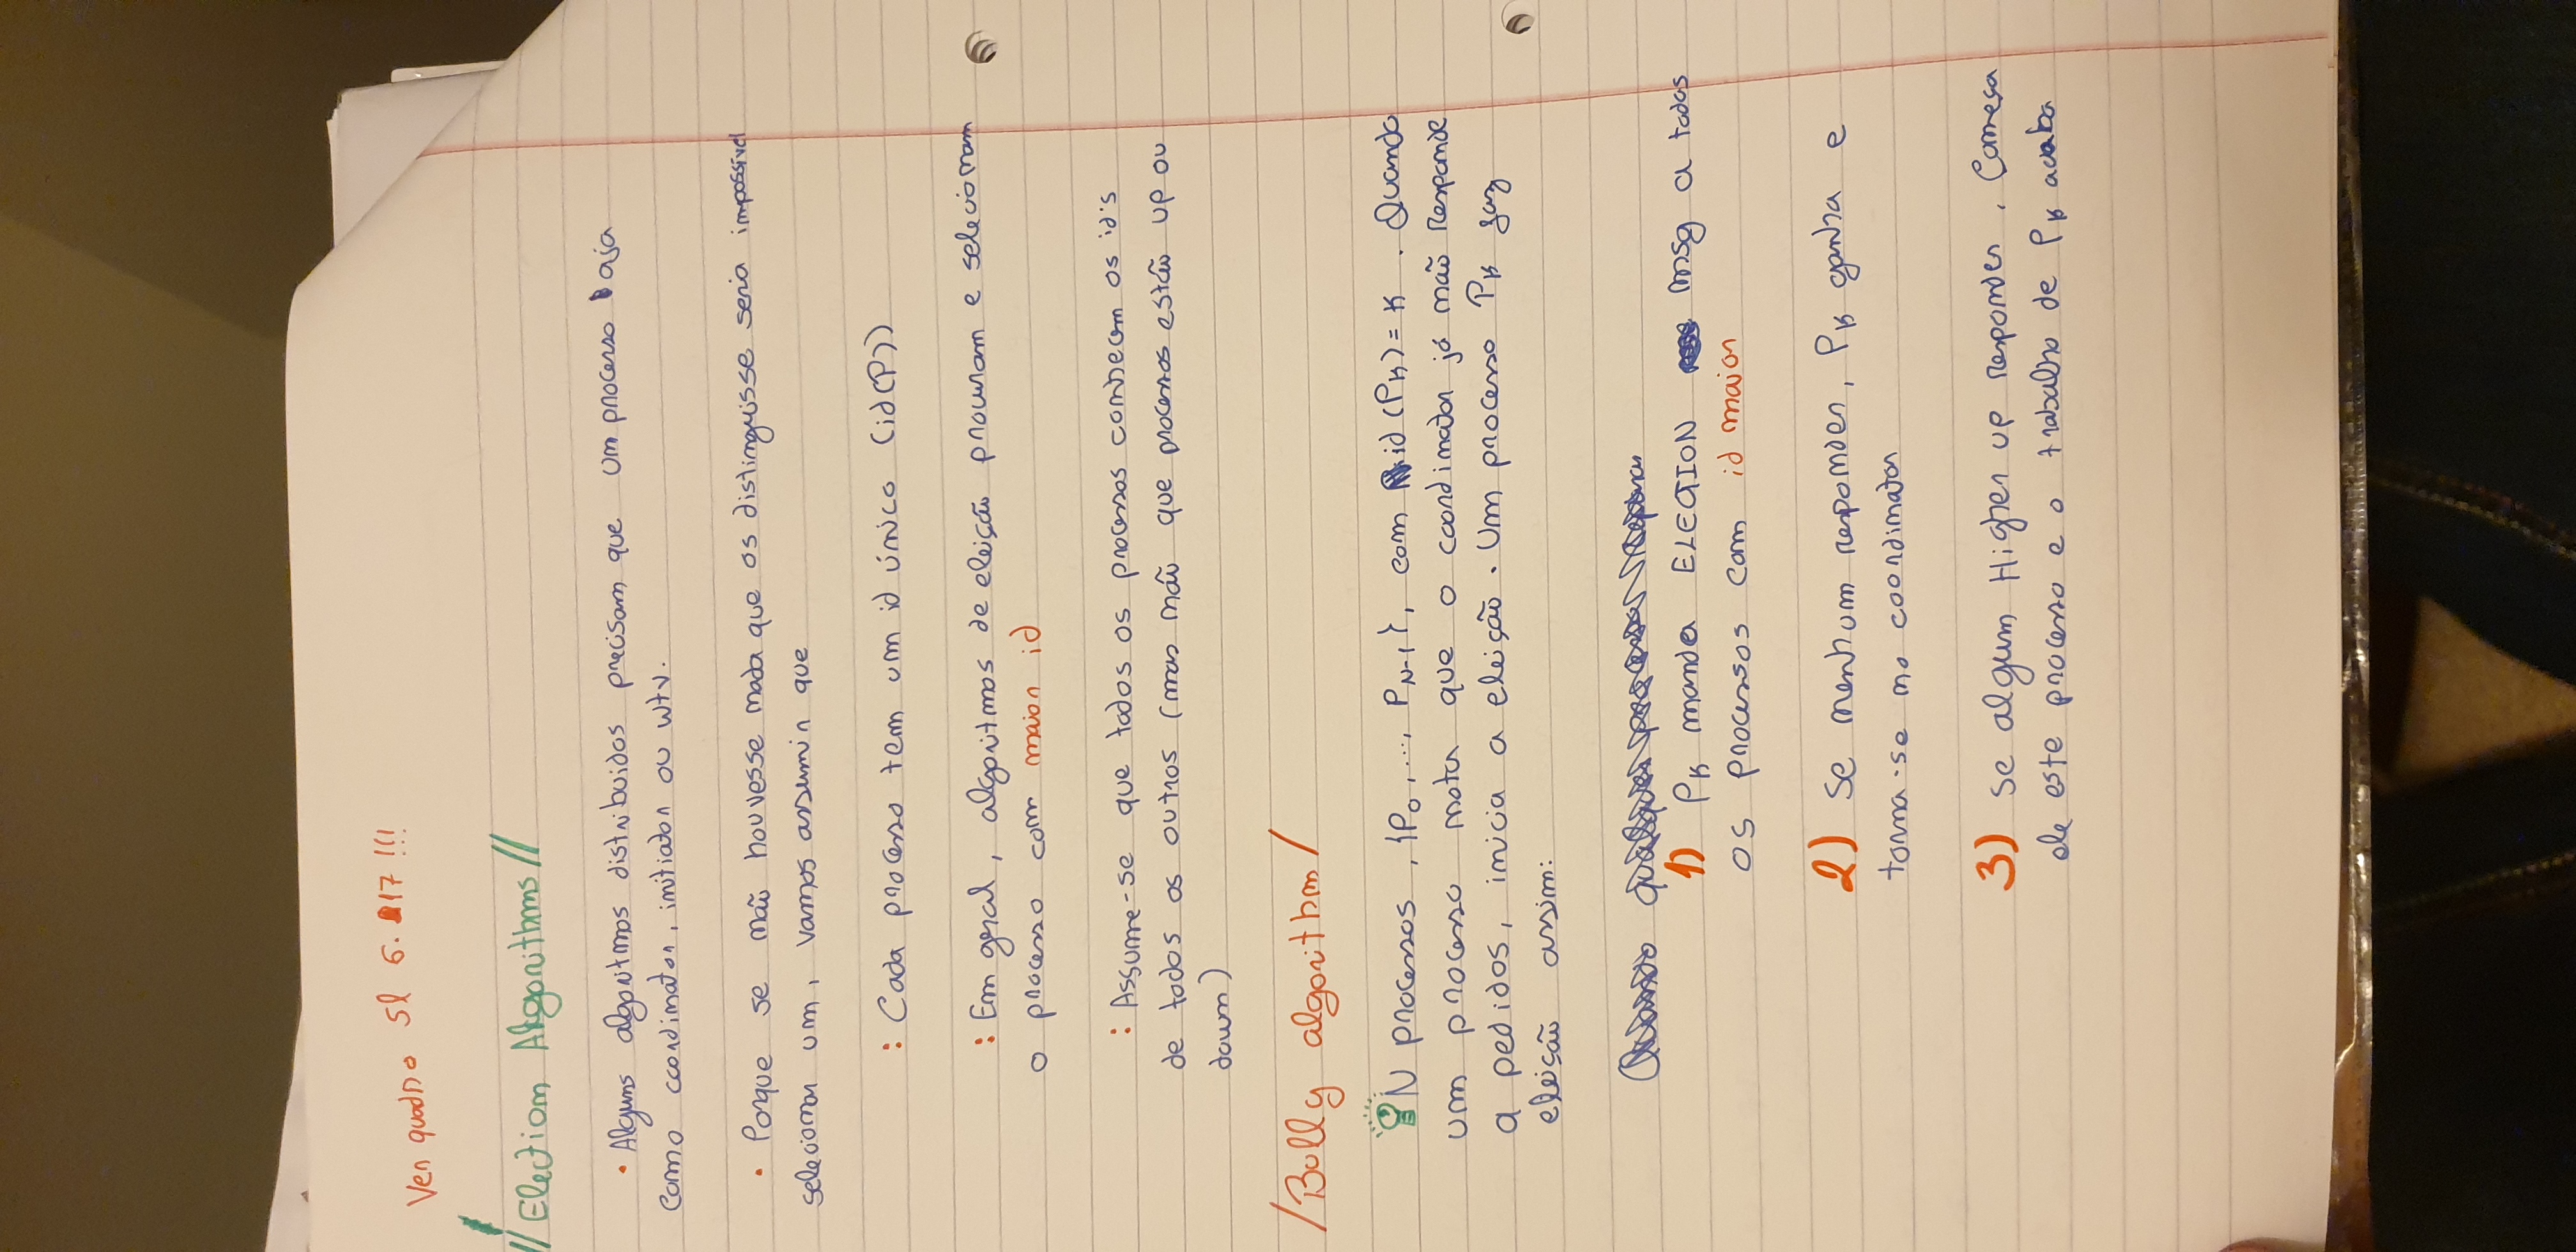 Ver quadro Sl 6.17 !!!
// Election Algorithms //
• Alguns algoritmos distribuidos precisam que um processo aja
como coordinator, initiator ou wtv.
• Porque se não houvesse nada que os distinguisse seria impossível
selecionar um, vamos assumir que
: Cada processo tem um id único (id(P))
: Em geral, algoritmos de eleição procuram e selecionam
o processo com maior id
: Assume-se que todos os processos conhecem os id's
de todos os outros (mas não que processos estão up ou
down)
/Bully algorithm/
N processos, {P0,..., PN-1}, com id(Pk)=k. Quando
um processo nota que o coordinator já não responde
a pedidos, inicia a eleição. Um processo Pk faz
eleição assim:
1) Pk manda ELECTION msg a todos
os processos com id maior
2) Se nenhum responder, Pk ganha e
torna-se no coordinator
3) Se algum Higher up responder, começa
ele este processo e o trabalho de Pk acaba